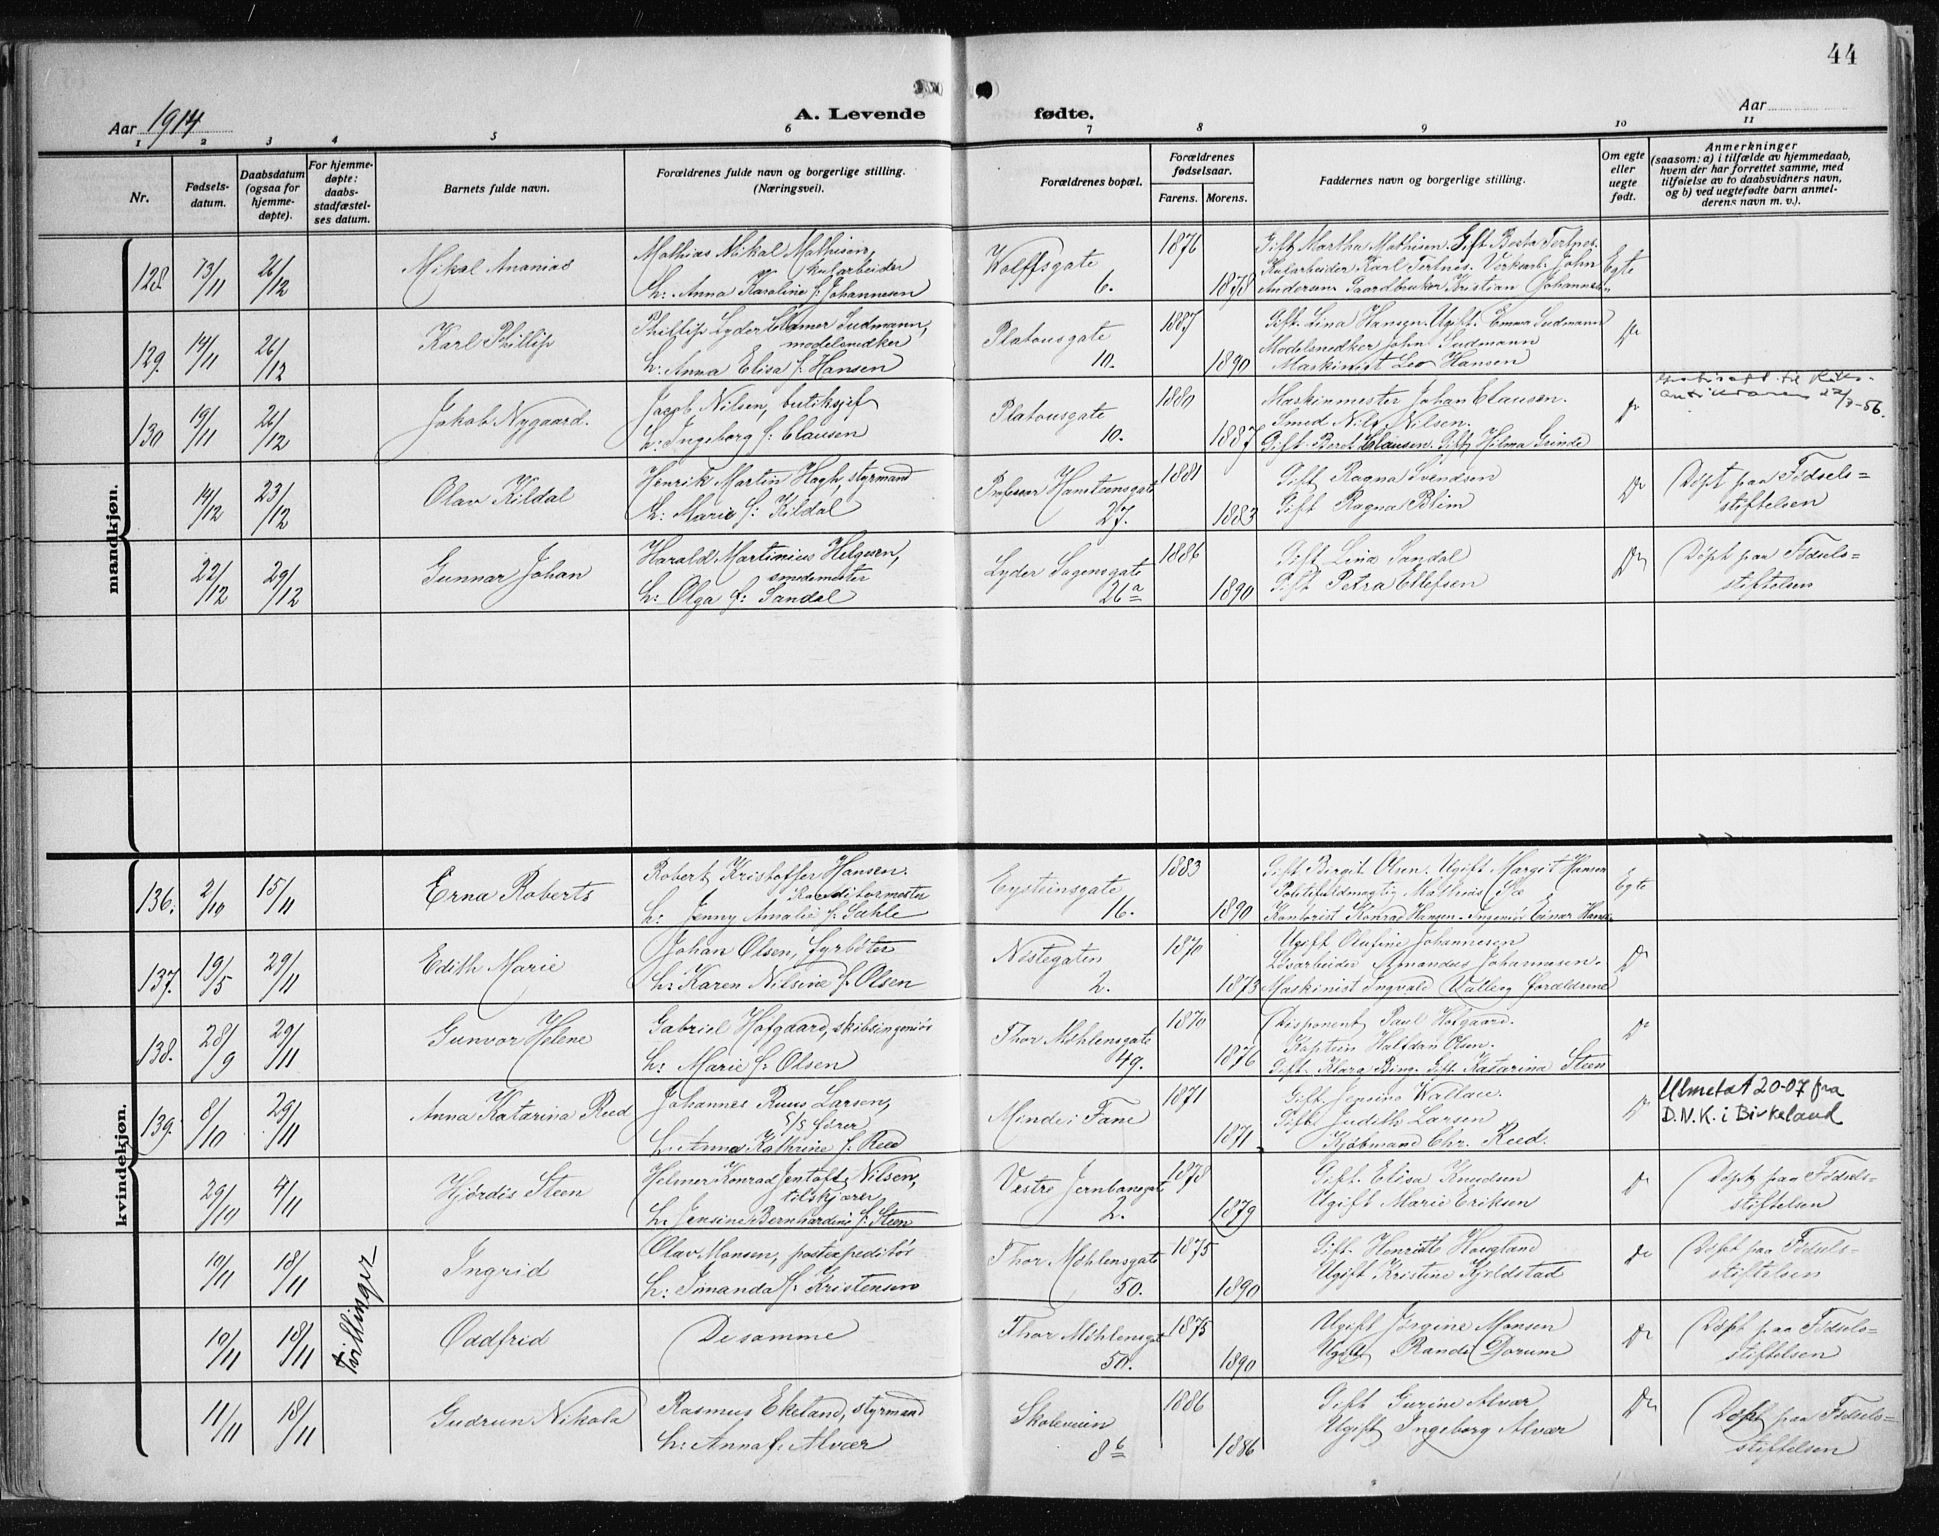 44
Aar 1914
A. Levende fødte.
Aar
1 2 3 4 5 6 7 8 9 10 11
Nr.
Fødselsdatum.
Daabsdatum (ogsaa for hjemmedøpte).
For hjemmedøpte: daabsstadfæstelses datum.
Barnets fulde navn.
Forældrenes fulde navn og borgerlige stilling. (Næringsvei).
Forældrenes bopæl.
Forældrenes fødselsaar.
Farens. Morens.
Faddernes navn og borgerlige stilling.
Om egte eller uegte født.
Anmerkninger
(saasom: a) i tilfælde av hjemmedaab,
hvem der har forrettet samme, med
tilføielse av to daabsvidners navn,
og b) ved uegtefødte barn anmelderens navn m. v.).
mandkjøn.
128. 13/11 26/12 Mikal Ananias
Mathias Mikal Mathisen,
kularbeider
h: Anna Karoline f: Johannesen
Wolffsgate 6.
1876 1878
Gift Martha Mathisen. Gift Berta Tertnes.
Kularbeider Karl Tertnes. John
Andersen. Gaardbruker Kristian Johannesen
Egte
129. 14/11 26/12 Karl Phillip
Phillip Lyder Sudmann,
modelsnedker
h: Anna Elisa f: Hansen
Platousgate 10.
1887 1890
Gift. Lina Hansen. Ugift. Emma Sudmann
Modelsnedker John Sudmann
Maskinist Leo Hansen
Do
130 19/11 26/12 Jakob Nygaard.
Jacob Nilsen, butiksjef
h: Ingeborg f: Clausen
Platousgate 10.
1880 1887
Maskinmester Johan Clausen.
Smed Nils Nilsen.
Gift. Berot Clausen. Gift Hilma Grinde
Do
14/12 23/12 Olav Kildal
Henrik Martin Hagh, styrmand
h: Marie f: Kildal
Professor Hansteensgate 27.
1881 1883
Gift Ragna Svendsen
Gift Ragna Blim
Do
Døpt paa Fødsels=
stiftelsen
22/12 29/12 Gunnar Johan
Harald Martinius Helgesen,
smedemester
h: Olga f: Sandal
Lyder Sagensgate 26a
1886 1890
Gift Lina Sandal
Gift Petra Ellefsen
Do
Døpt paa Fødsels=
stiftelsen
kvindekjøn.
136. 2/10 15/11 Erna Roberts
Robert Kristoffer Hansen.
Konditormester
h: Jenny Amalie f: Sahle
Eysteinsgate 16.
1883 1890
Gift Birgit Olsen. Ugift Margit Hansen
Politifuldmægtig Mathias
Kontorist Konrad Hansen. Ingeniør Einar Hansen
Egte
137. 19/5 29/11 Edith Marie
Johan Olsen, fyrbøter
h: Karen Nilsine f: Olsen
Nøstegaten 2.
1870 1873
Ugift Olufine Johannesen
Løsarbeider Amandus Johannesen.
Maskinist Ingvald Valberg forældrene
Do
138. 28/9 29/11 Gunvor Helene
Gabriel Hofgaard, skibsingeniør
h: Marie f: Olsen
Thor Møhlensgate 49.
1870 1876
Disponent Paul Hofgaard.
Kaptein Halfdan Olsen.
Gift. Klara Bing. Gift Katarina Steen
Do
139. 8/10 29/11 Anna Katarina Reed
Johannes Ruus Larsen,
S/S fører
h. Anna Kathrine f. Reed
Minde i Fane
1871 1871
Gift Jensine Wallace.
Gift. Judith Larsen
Kjøbmand Chr. Reed.
Do
Utmeldt 20-07 fra
D.N.K. i Birkeland
29/10 4/11 Hjørdis Steen
Helmer Konrad Jentoft Nilsen,
tilskjærer
h. Jensine Bernhardine f: Steen
Vestre Jernbanegate 2.
1878 1879
Gift. Elisa Knudsen
Ugift Marie Eriksen
Do
Døpt paa Fødsels=
stiftelsen
10/11 18/11 Tvillinger Ingrid
Olav Monsen, postexpeditør
h: Imanda f: Kristensen
Thor Møhlensgate 50.
1875 1890
Gift. Henriette Haugland
Ugift Kristine Kjeldstad
Do
Døpt paa Fødsels=
stiftelsen
10/11 18/11 Oddfrid
De samme
Thor Møhlensgate 50.
1875 1890
Ugift Jørgine Monsen
Ugift Randi Dorum
Do
Døpt paa Fødsels=
stiftelsen
11/11 18/11 Gudrun Nikola
Rasmus Ekeland, styrmand
h: Anna f: Alvær
Skoleveien 8b
1886 1886
Gift Gurine Alvær
Ugift Ingeborg Alvær
Do
Døpt paa Fødsels=
stiftelsen